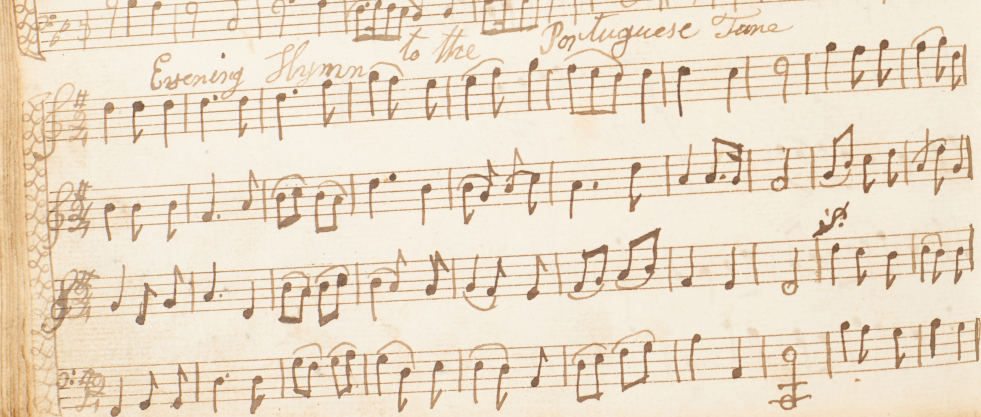 Evening Hymn to the Portuguese Tune